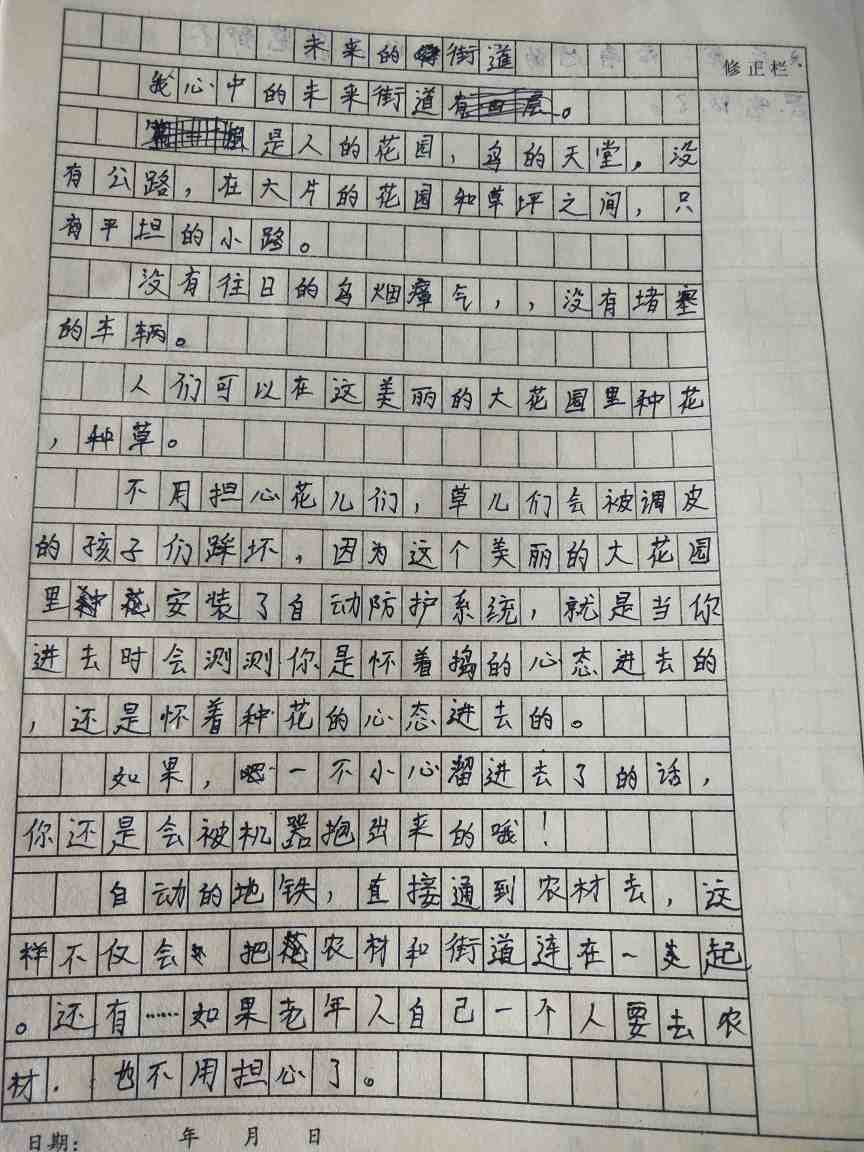 未来的街道
修正栏
我心中的未来街道有四层。
是人的花园，鸟的天堂。没
有公路，在大片的花园和草坪之间，只
有平担的小路。
没有往日的乌烟瘴气，，没有堵塞
的车辆。
人们可以在这美丽的大花园里种花
，种草。
不用担心花儿们，草儿们会被调皮
的孩子们踩坏，因为这个美丽的大花园
里安装了自动防护系统，就是当你
进去时会测测你是怀着捣的心态进去的
，还是怀着种花的心态进去的。
如果，一不小心溜进去了的话，
你还是会被机器抱出来的哦！
自动的地铁，直接通到农材去，这
样不仅会把农材和街道连在一起
。还有……如果老年人自己一个人要去农
材．也不用担心了。
日期：　年　月　日